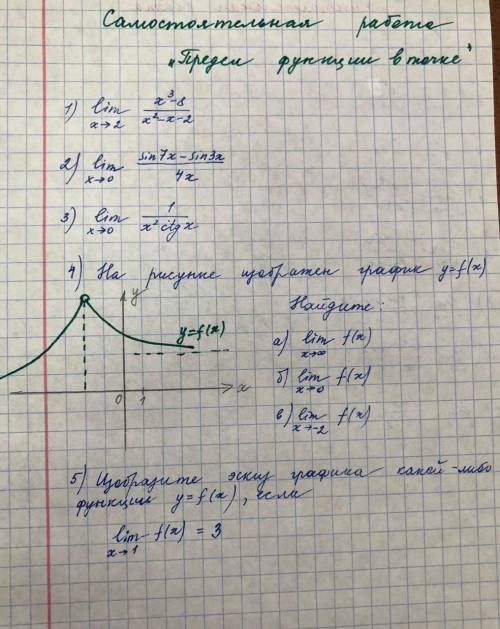 Самостоятельная работа
„Предел функции в точке“
1) lim x→2 (x³-8)/(x²-x-2)
2) lim x→0 (sin7x-sin3x)/4x
3) lim x→0 1/(x² ctgx)
4) На рисунке изображен график y=f(x)
Найдите:
y
y=f(x)
0 1 x
а) lim x→∞ f(x)
б) lim x→0 f(x)
в) lim x→-2 f(x)
5) Изобразите эскиз графика какой-либо
функции y=f(x), если
lim x→1 f(x) = 3